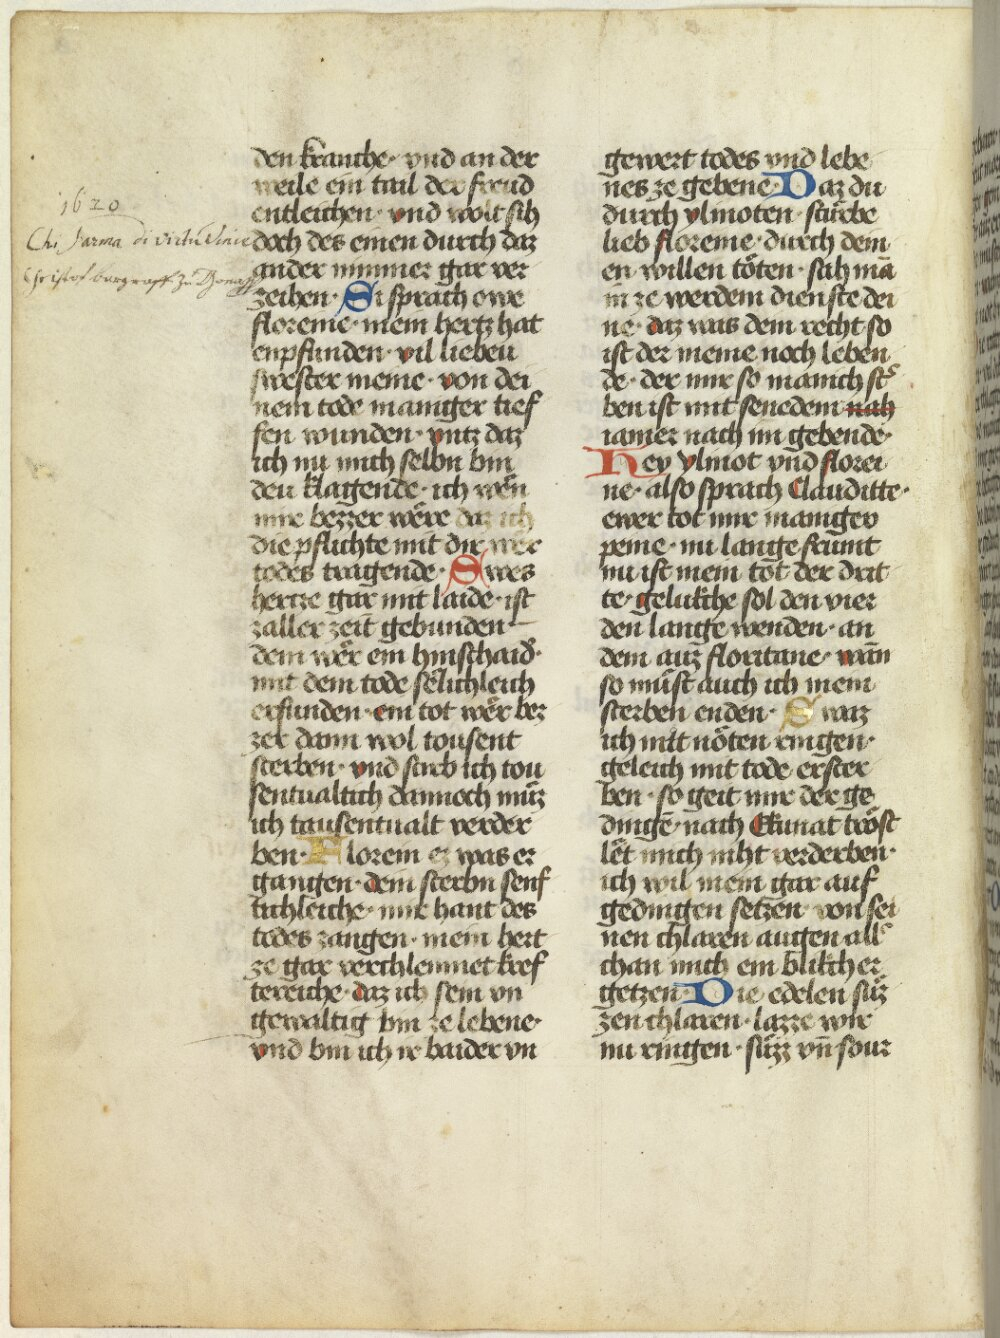 1620
Chi s'arma di virtu vince
Christof burgraff zu Dona
den kranche· vnd an der
weile ein tail der freud
entleichen· vnd wolt sih
doch des einen durch daz
ander nimmer gar ver
zeihen· Si sprach owe
floreine· mein hertz hat
enpfunden· vil lieben
swester meine· von dei
nem tode maniger tief
fen wunden· vntz daz
ich nu mich selbn bin
den klagende· ich wen
mir bezzer wêre daz ich
die pflichte mit dir wêr
todes tragende· Swes
hertze gar mit laide· ist
zaller zeit gebunden
dem wêr ein hinschaid·
mit dem tode sêlichleich
erfunden· ein tot wêr bez
zer dann wol tousent
sterben· vnd starb ich tou
sentualtich dannoch müz
ich tausentualt verder
ben· Florein ez was er
gangen· dem sterbn senf
tichleiche· mir hant des
todes zangen· mein hert
ze gar verchlemmet kref
tereiche· daz ich sein vn
gewaltig bin ze lebene·
vnd bin ich ir baider vn
gewert todes vnd lebe
nes ze gebene· Daz du
durch ylinoten· stürbe
lieb floreine· durch dein
en willen töten· sah mā
in ze werdem dienste dei
ne· daz was dem recht so
ist der meine noch leben
de· der mir so manich st
ben ist mit senedem nah
iamer nach im gebende·
Hey ylinot vnd florei
ne· also sprach Clauditte·
ewer tot mir maniger
peine· nu lange frumt
nu ist mein tot der drit
te· gelukche sol den vier
den lange wenden· an
dem auz floritane· wan
so müst auch ich mein
sterben enden· Swaz
ich mit nöten ringen·
geleich mit tode erster
ben· so geit mir der ge
dinge· nach Ekunat tröst
lêt mich niht verderben·
ich wil mein gar auf
gedingen setzen· von sei
nen chlaren augen all
chan mich ein blikch er
getzen· Die edelen süz
zen chlaren· lazze wir
nu ringen· süzz vn̄ sour